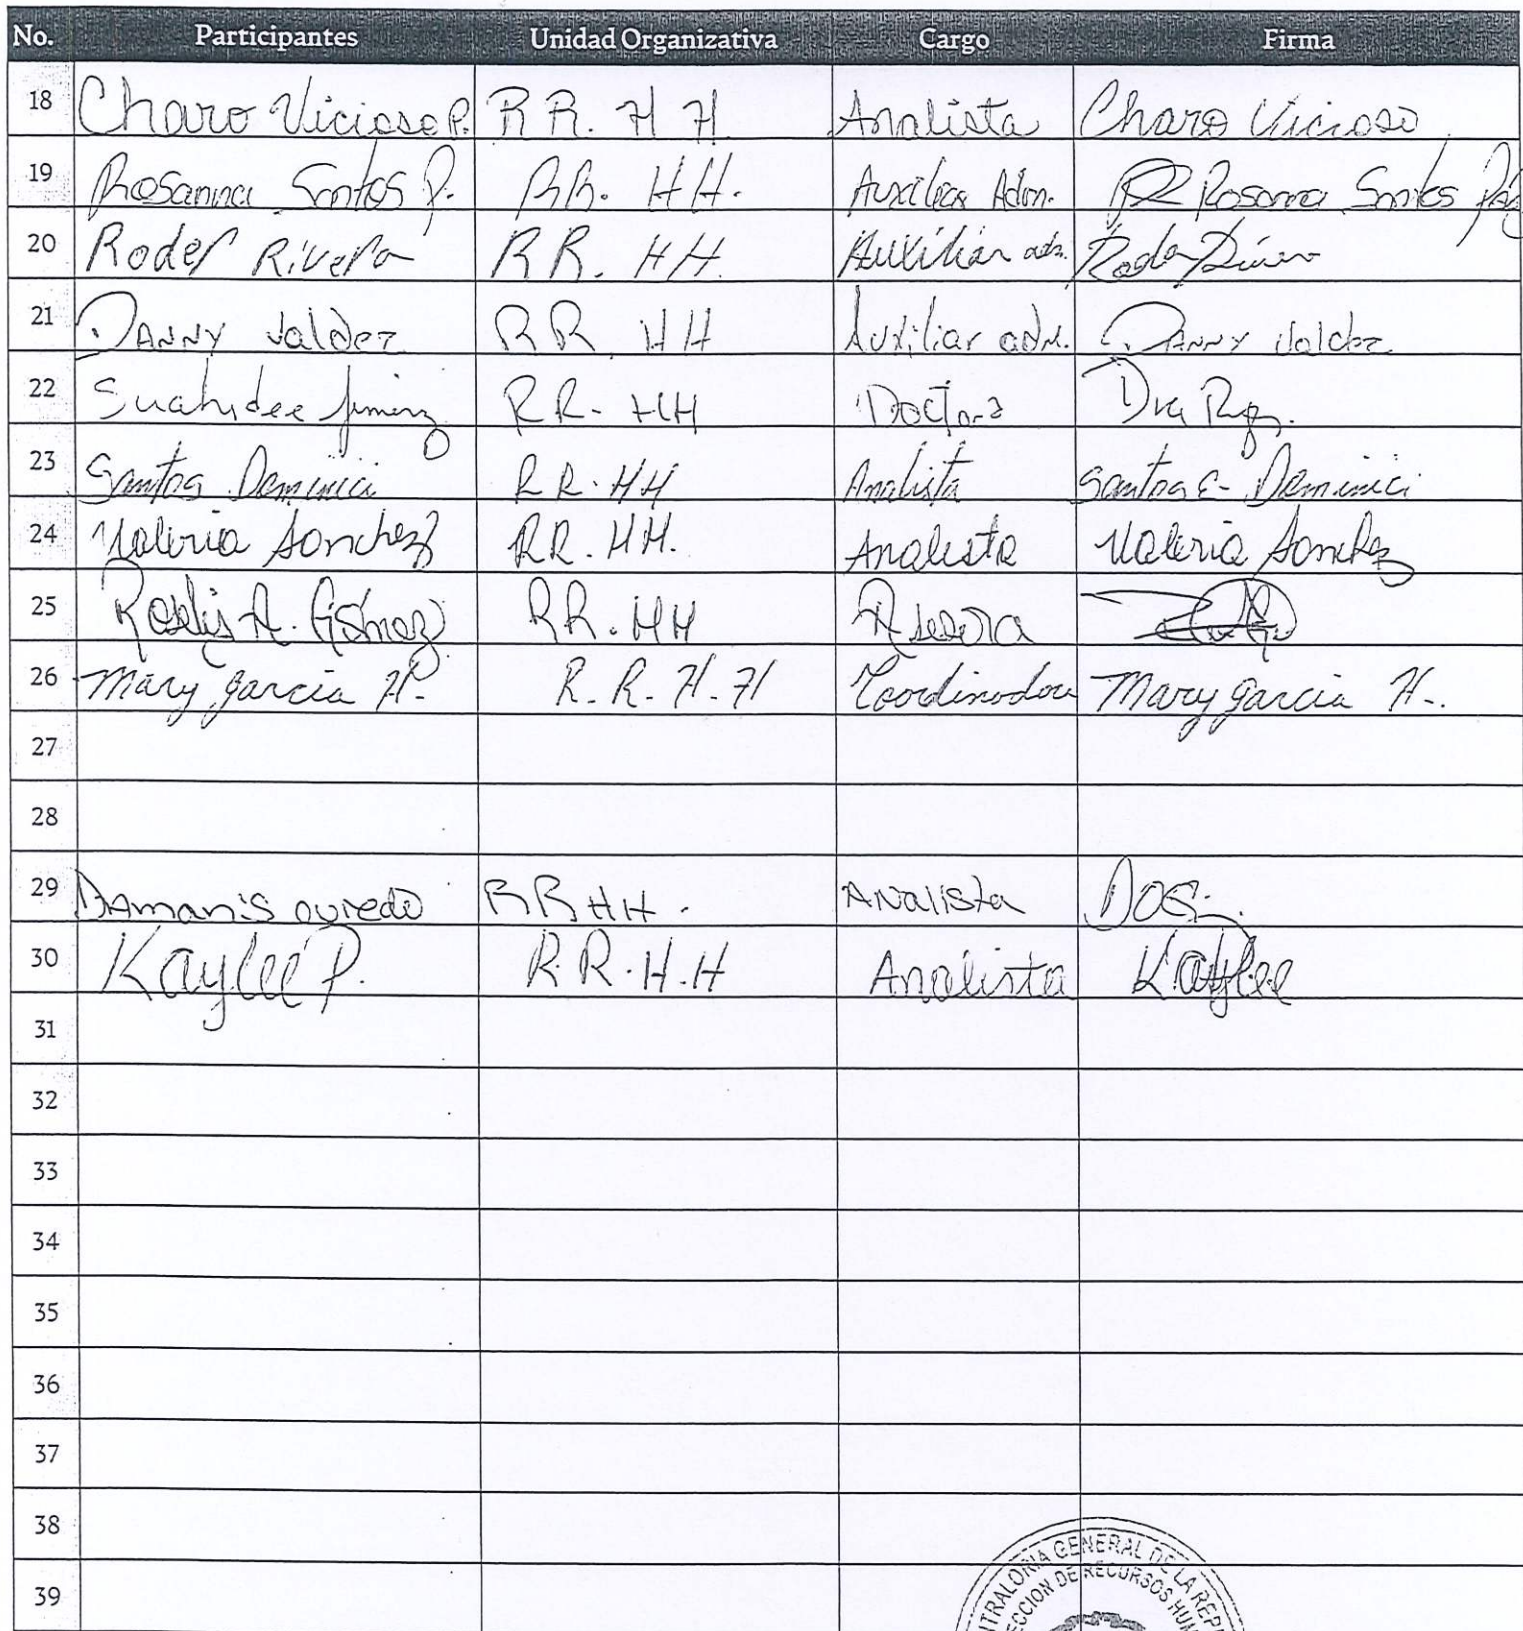 No. Participantes Unidad Organizativa Cargo Firma
18 Charo Vicioso P. RR. HH Analista Charo Vicioso
19 Rosanna Santos P. RR. HH. Auxiliar Adm. Rosanna Santos
20 Roder Rivera RR. HH. Auxiliar adm. Roder Rivera
21 DANNY Valdez RR HH Auxiliar adm. DANNY Valdez
22 Suahidee Jimenz RR- HH Doctora Dra
23 Santos Deminici RR. HH Analista Santos E- Deminici
24 Valeria Sanchez RR. HH. Analista Valeria Sanchez
25 A. Gómez RR. HH Asesora
26 Mary Garcia H. R. R. H. H Coordinadora Mary Garcia H.
27
28
29 DAmaris oviedo RR HH. ANalista
30 Kaylee P. R.R.H.H Analista Kaylee
31
32
33
34
35
36
37
38
39
GENERAL DE LA
DE RECURSOS